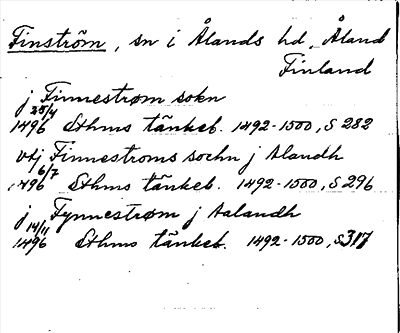 Finström, sn i Ålands hd, Åland
Finland
j Finnestrøm sokn
28/4
1496 Sthms tänkeb. 1492-1500, S 282
vtj Finnestroms sochn j Alandh
6/7
1496 Sthms tänkeb. 1492-1500, S 296
j Fynnestrøm j Aalandh
14/11
1496 Sthms tänkeb. 1492-1500, S 317